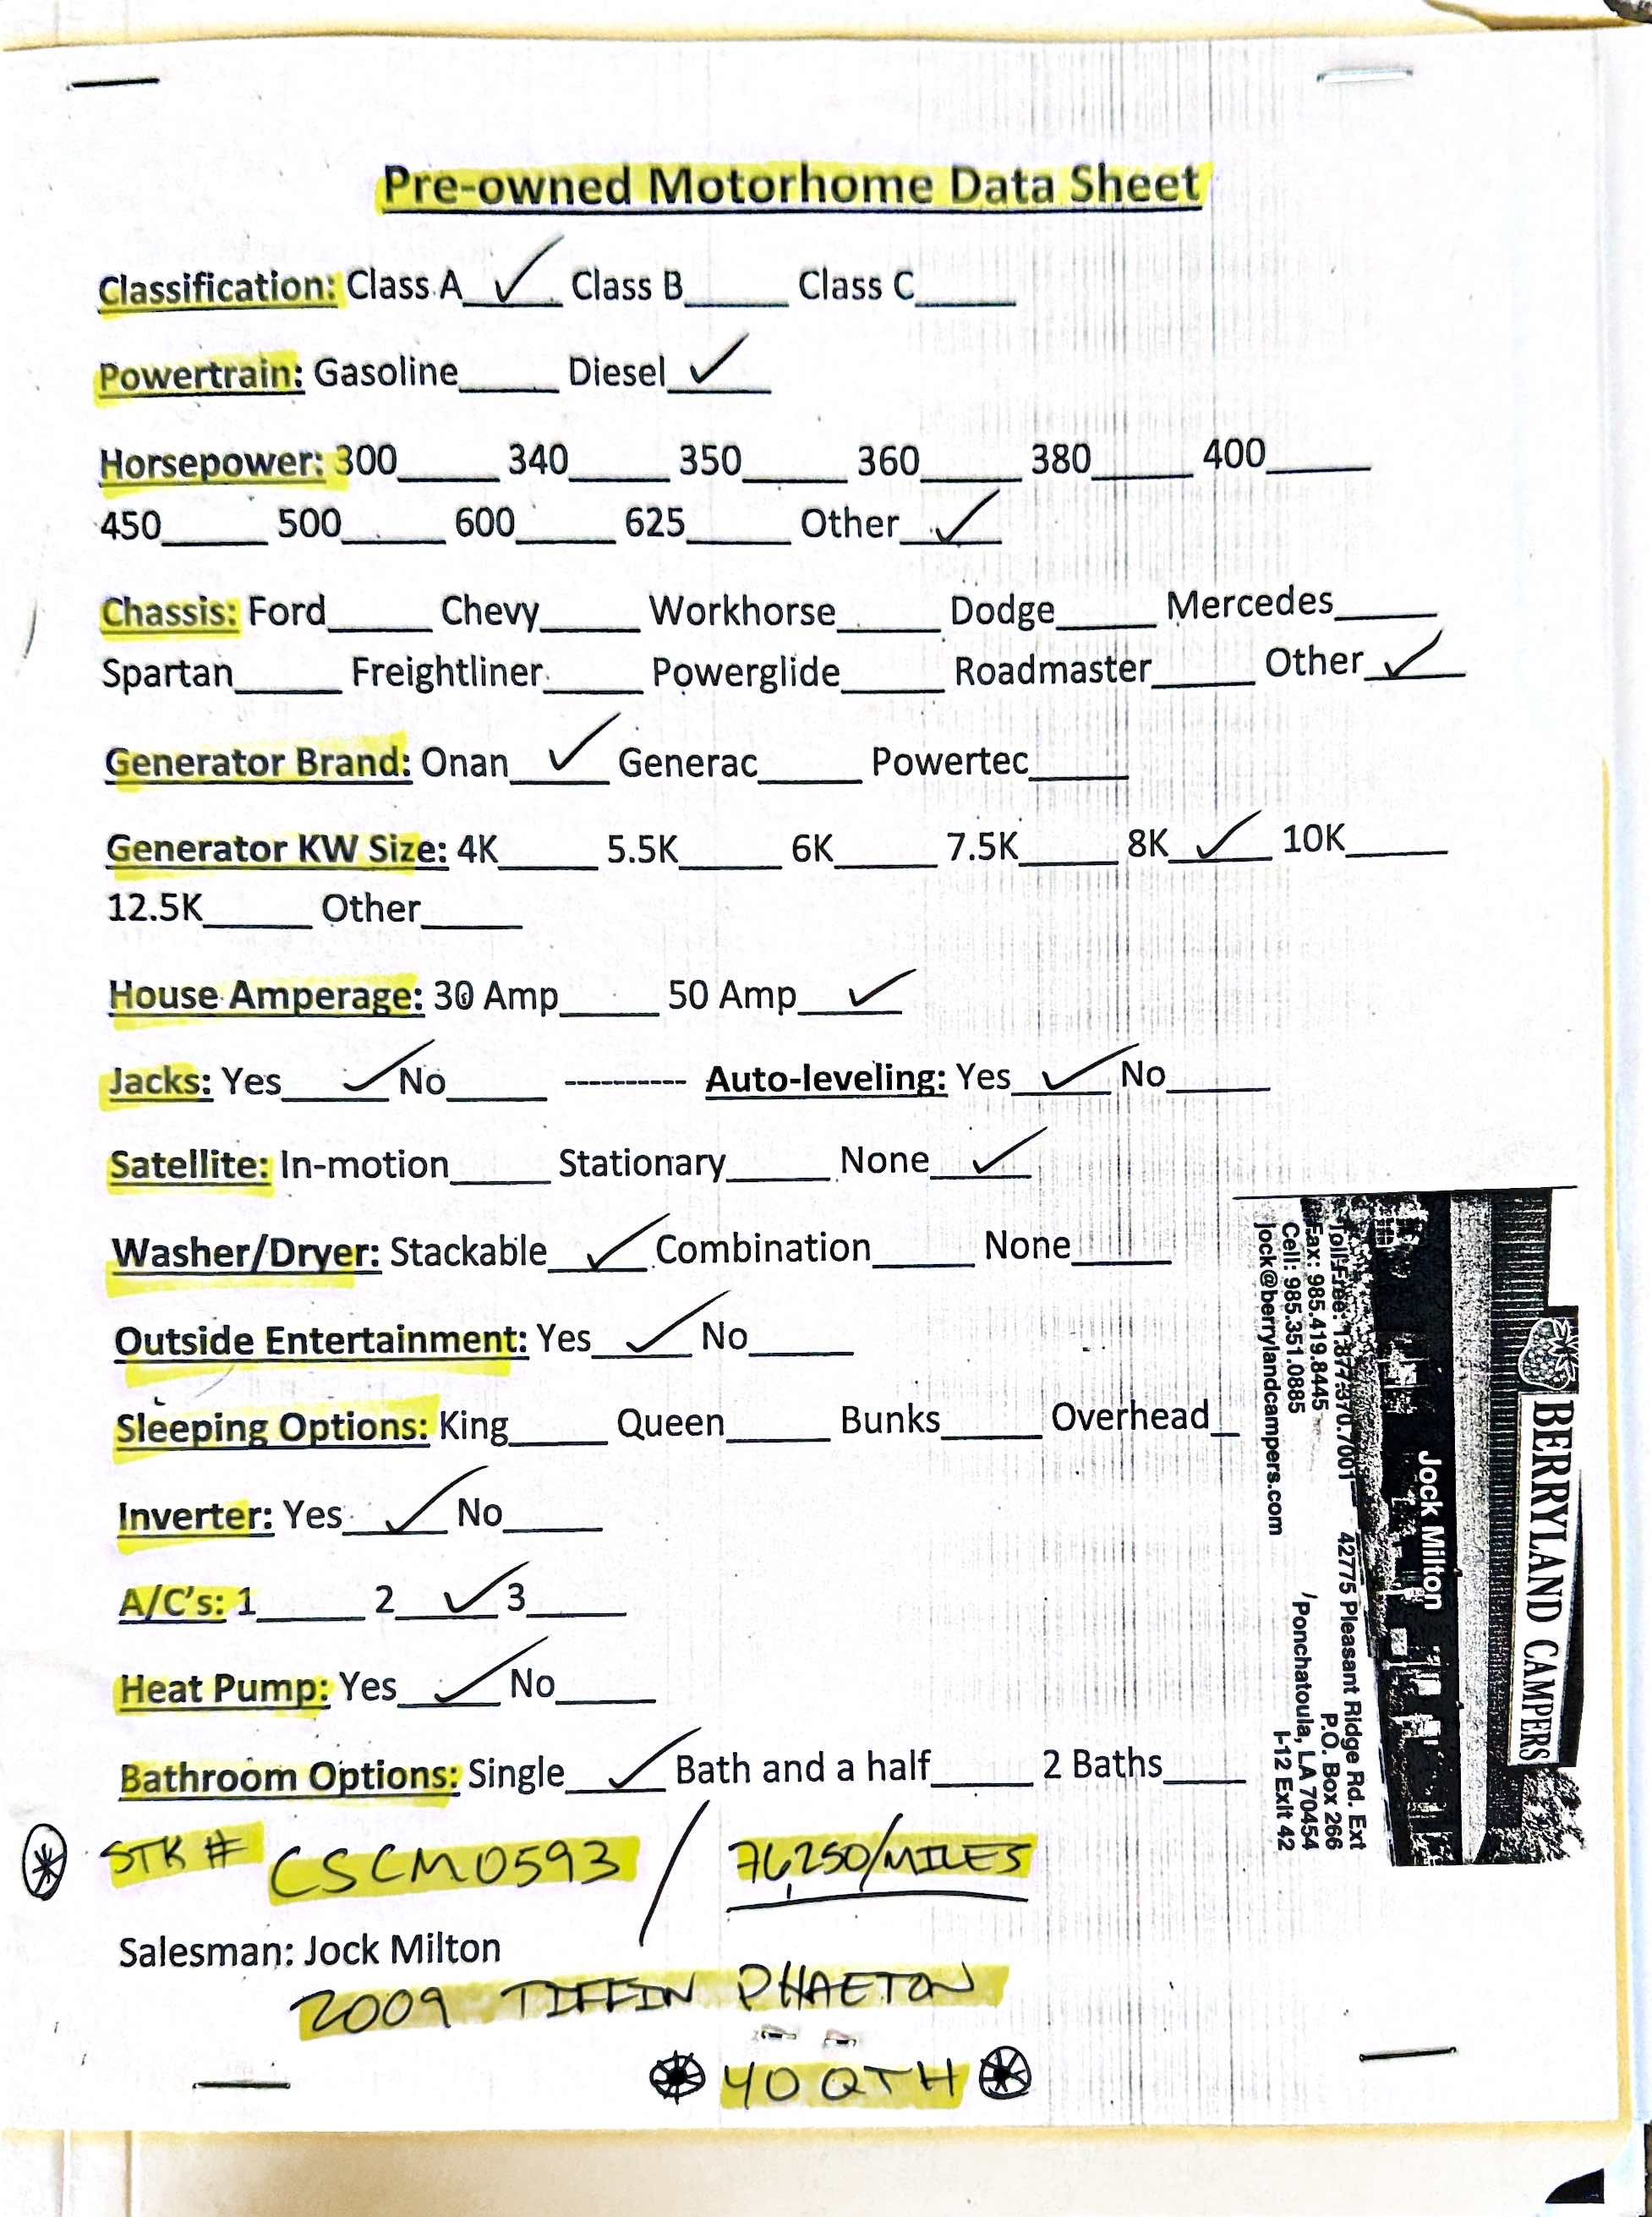 Pre-owned Motorhome Data Sheet
Classification: Class A__✓__ Class B_____ Class C_____
Powertrain: Gasoline_____ Diesel__✓__
Horsepower: 300_____ 340_____ 350_____ 360_____ 380_____ 400_____
450_____ 500_____ 600_____ 625_____ Other__✓__
Chassis: Ford_____ Chevy_____ Workhorse_____ Dodge_____ Mercedes_____
Spartan_____ Freightliner_____ Powerglide_____ Roadmaster_____ Other__✓__
Generator Brand: Onan__✓__ Generac_____ Powertec_____
Generator KW Size: 4K_____ 5.5K_____ 6K_____ 7.5K_____ 8K__✓__ 10K_____
12.5K_____ Other_____
House Amperage: 30 Amp_____ 50 Amp__✓__
Jacks: Yes__✓__ No_____ ---------- Auto-leveling: Yes__✓__ No_____
Satellite: In-motion_____ Stationary_____ None__✓__
Washer/Dryer: Stackable__✓__ Combination_____ None_____
Outside Entertainment: Yes__✓__ No_____
Sleeping Options: King_____ Queen_____ Bunks_____ Overhead_
Inverter: Yes__✓__ No_____
A/C's: 1_____ 2__✓__ 3_____
Heat Pump: Yes__✓__ No_____
Bathroom Options: Single__✓__ Bath and a half_____ 2 Baths____
STK # CSCM0593 / 76,250/MILES
Salesman: Jock Milton
2009 TIFFIN PHAETON
40 QTH
BERRYLAND CAMPERS
Jock Milton
Toll Free: 1.877.370.7001 42775 Pleasant Ridge Rd. Ext
Fax: 985.419.8445 P.O. Box 266
Cell: 985.351.0885 Ponchatoula, LA 70454
jock@berrylandcampers.com I-12 Exit 42